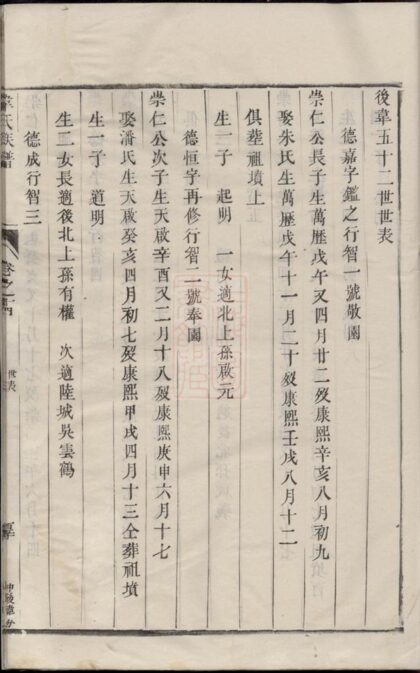 後韋五十二世世表
德嘉字鑑之行智一號敬園
崇仁公長子生萬歷戊午又四月廿二歿康熙辛亥八月初九
娶朱氏生萬歷戊午十一月二十歿康熙壬戌八月十二
俱塟祖墳上
生一子 起明 一女適北上孫啟元
德恒字再修行智二號奉園
崇仁公次子生天啟辛酉又二月十八歿康熙庚申六月十七
娶潘氏生天啟癸亥四月初七歿康熙甲戌四月十三仝葬祖墳
生一子 道明
生二女長適後北上孫有權 次適陸城吳雲鶴
德成行智三
韋氏族譜
卷之
世表